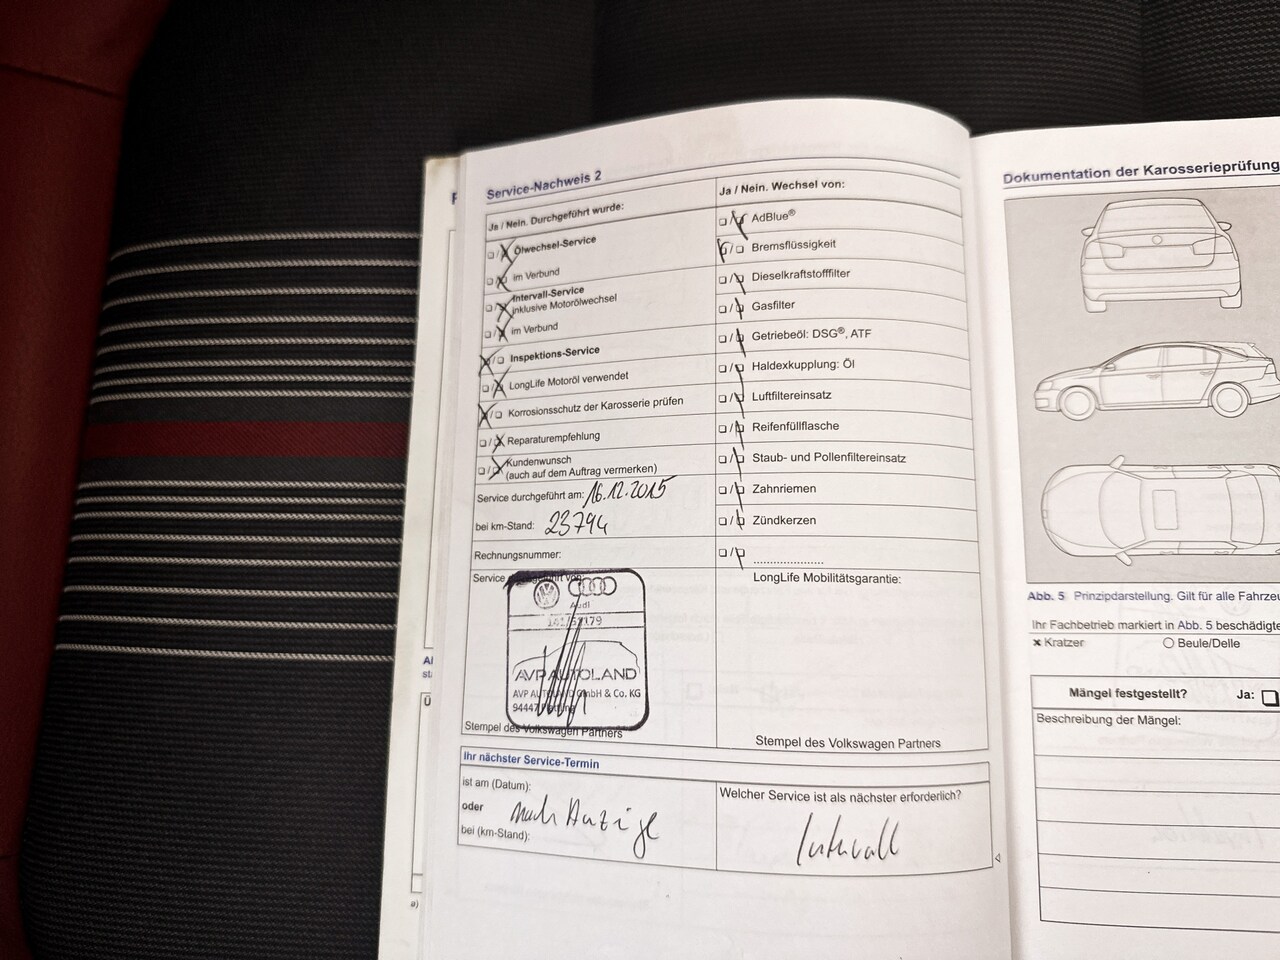 Service-Nachweis 2
Ja / Nein. Durchgeführt wurde:
Ölwechsel-Service
im Verbund
Intervall-Service
inklusive Motorölwechsel
im Verbund
Inspektions-Service
LongLife Motoröl verwendet
Korrosionsschutz der Karosserie prüfen
Reparaturempfehlung
Kundenwunsch
(auch auf dem Auftrag vermerken)
Service durchgeführt am: 16.12.2015
bei km-Stand: 23794
Rechnungsnummer:
Service durchgeführt von:
Audi
AVP AUTOLAND
AVP AUTOLAND GmbH & Co. KG
94447
Stempel des Volkswagen Partners
Ja / Nein. Wechsel von:
AdBlue®
Bremsflüssigkeit
Dieselkraftstofffilter
Gasfilter
Getriebeöl: DSG®, ATF
Haldexkupplung: Öl
Luftfiltereinsatz
Reifenfüllflasche
Staub- und Pollenfiltereinsatz
Zahnriemen
Zündkerzen
......................
LongLife Mobilitätsgarantie:
Stempel des Volkswagen Partners
Ihr nächster Service-Termin
ist am (Datum):
oder nach Anzeige
bei (km-Stand):
Welcher Service ist als nächster erforderlich?
Intervall
Dokumentation der Karosserieprüfung
Abb. 5 Prinzipdarstellung. Gilt für alle Fahrzeu
Ihr Fachbetrieb markiert in Abb. 5 beschädigte
Kratzer
Beule/Delle
Mängel festgestellt? Ja:
Beschreibung der Mängel: